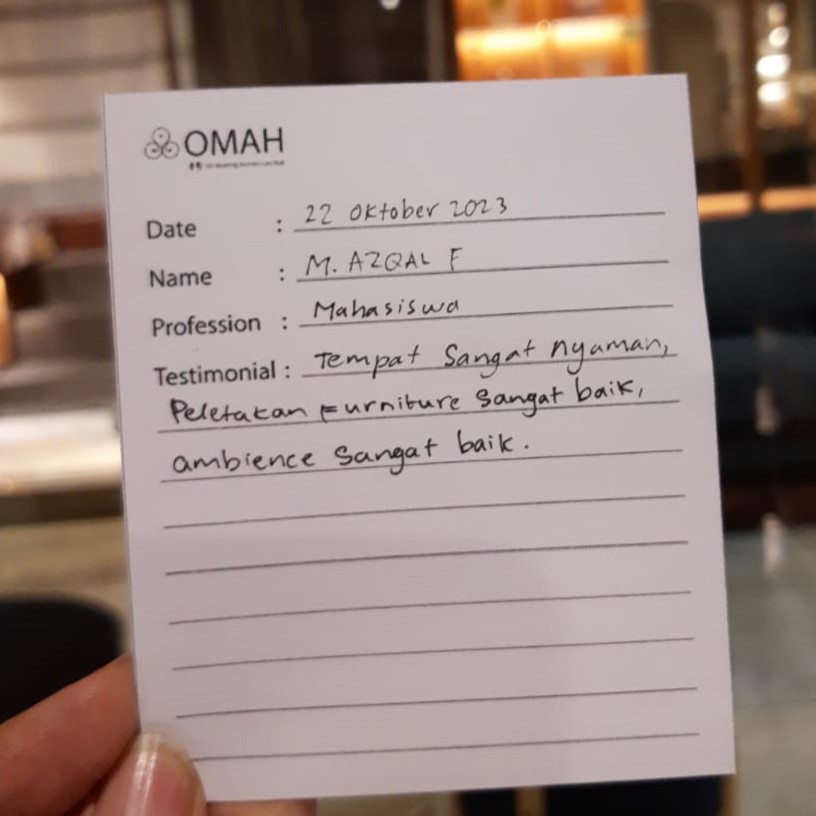 OMAH
Date : 22 Oktober 2023
Name : M. AZQAL F
Profession : Mahasiswa
Testimonial : Tempat Sangat nyaman,
Peletakan Furniture Sangat baik,
ambience Sangat baik.